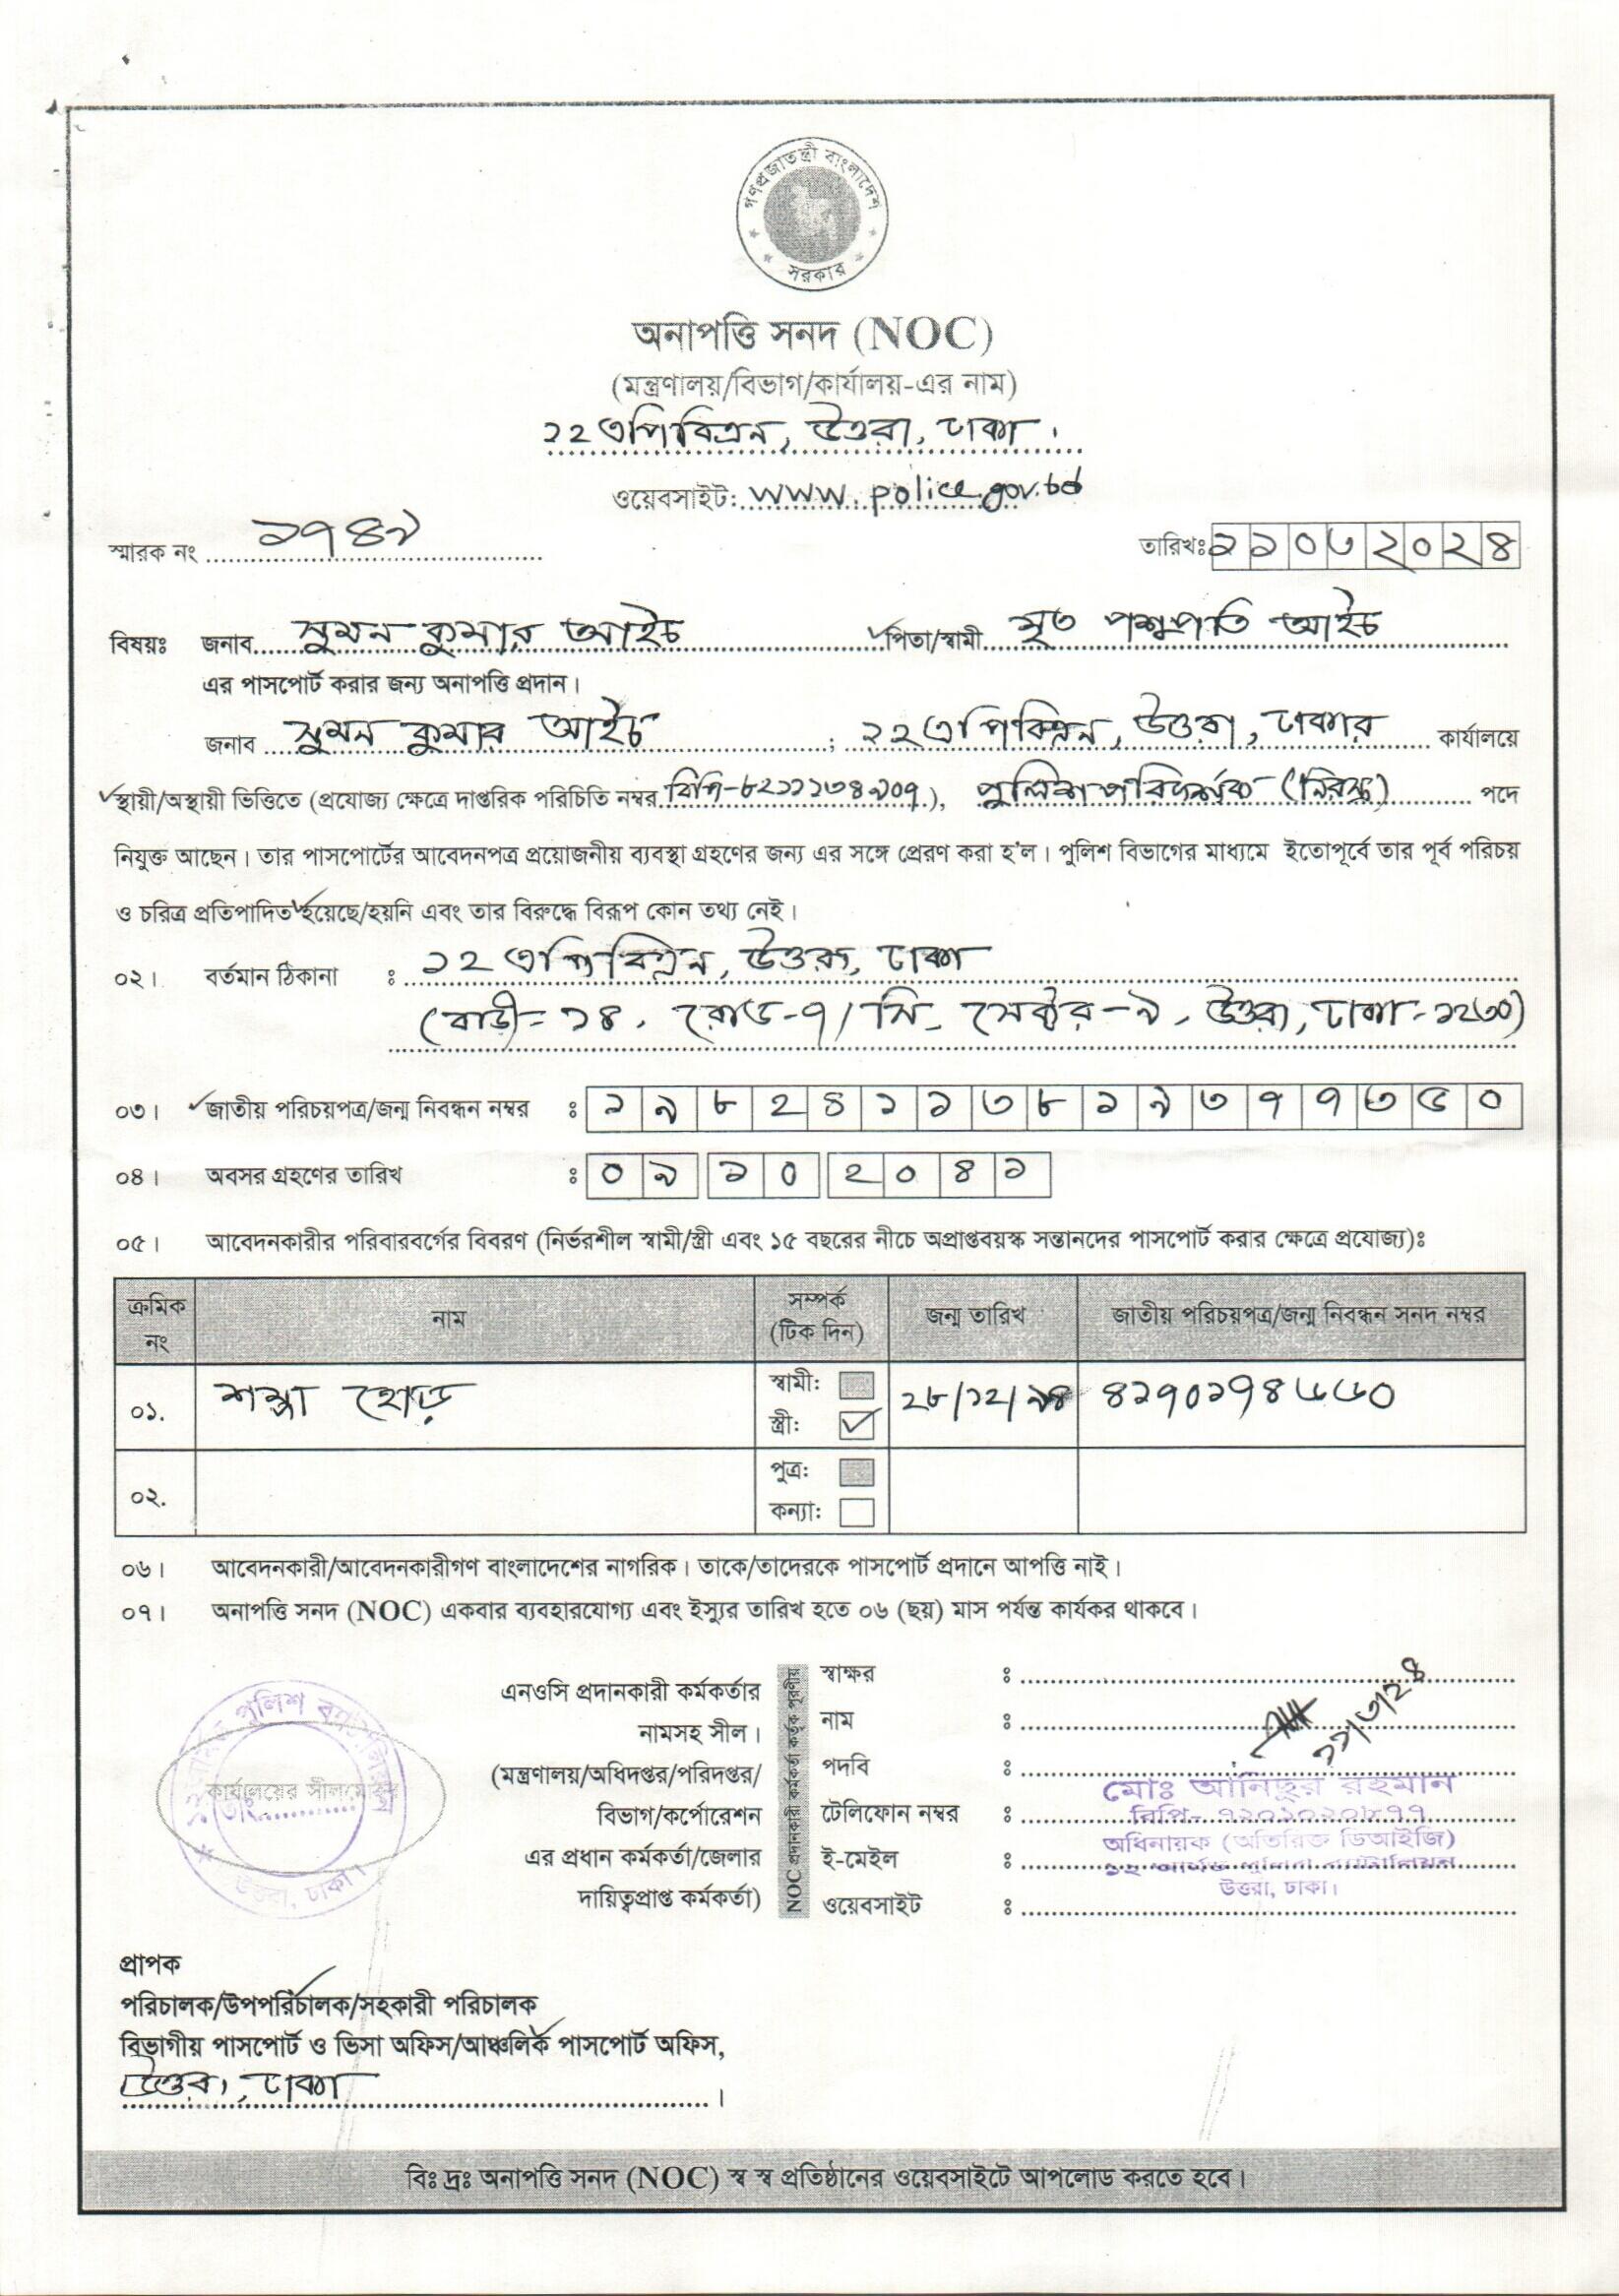 গণপ্রজাতন্ত্রী বাংলাদেশ
সরকার
অনাপত্তি সনদ (NOC)
(মন্ত্রণালয়/বিভাগ/কার্যালয়-এর নাম)
১২ এপিবিএন, উত্তরা, ঢাকা।
ওয়েবসাইট: www.police.gov.bd
স্মারক নং ১৭৪৯
তারিখঃ ২১০৩২০২৪
বিষয়ঃ জনাব সুমন কুমার আইচ পিতা/স্বামী মৃত পশুপতি আইচ
এর পাসপোর্ট করার জন্য অনাপত্তি প্রদান।
জনাব সুমন কুমার আইচ ; ১২ এপিবিএন, উত্তরা, ঢাকার কার্যালয়ে
স্থায়ী/অস্থায়ী ভিত্তিতে (প্রযোজ্য ক্ষেত্রে দাপ্তরিক পরিচিতি নম্বর বিপি-৮২১১১৩৪৯০৭), পুলিশ পরিদর্শক (নিরস্ত্র) পদে
নিযুক্ত আছেন। তার পাসপোর্টের আবেদনপত্র প্রয়োজনীয় ব্যবস্থা গ্রহণের জন্য এর সঙ্গে প্রেরণ করা হ'ল। পুলিশ বিভাগের মাধ্যমে ইতোপূর্বে তার পূর্ব পরিচয়
ও চরিত্র প্রতিপাদিত হয়েছে/হয়নি এবং তার বিরুদ্ধে বিরূপ কোন তথ্য নেই।
০২। বর্তমান ঠিকানা : ১২ এপিবিএন, উত্তরা, ঢাকা
(বাড়ী-১৪, রোড-৭/সি, সেক্টর-৯, উত্তরা, ঢাকা-১২৩০)
০৩। জাতীয় পরিচয়পত্র/জন্ম নিবন্ধন নম্বর : ১৯৮২৪১১৩৮১৯৩৭৭৩৫০
০৪। অবসর গ্রহণের তারিখ : ০৯১০২০৪১
০৫। আবেদনকারীর পরিবারবর্গের বিবরণ (নির্ভরশীল স্বামী/স্ত্রী এবং ১৫ বছরের নীচে অপ্রাপ্তবয়স্ক সন্তানদের পাসপোর্ট করার ক্ষেত্রে প্রযোজ্য)ঃ
ক্রমিক নং নাম সম্পর্ক (টিক দিন) জন্ম তারিখ জাতীয় পরিচয়পত্র/জন্ম নিবন্ধন সনদ নম্বর
০১. শম্পা হোড় স্বামী: ২৮/১২/ ৪১৭০১৭৪৬৬৬০
স্ত্রী:
০২. পুত্র:
কন্যা:
০৬। আবেদনকারী/আবেদনকারীগণ বাংলাদেশের নাগরিক। তাকে/তাদেরকে পাসপোর্ট প্রদানে আপত্তি নাই।
০৭। অনাপত্তি সনদ (NOC) একবার ব্যবহারযোগ্য এবং ইস্যুর তারিখ হতে ০৬ (ছয়) মাস পর্যন্ত কার্যকর থাকবে।
কার্যালয়ের সীলমোহর
তাং
উত্তরা, ঢাকা।
এনওসি প্রদানকারী কর্মকর্তার
নামসহ সীল।
(মন্ত্রণালয়/অধিদপ্তর/পরিদপ্তর/
বিভাগ/কর্পোরেশন
এর প্রধান কর্মকর্তা/জেলার
দায়িত্বপ্রাপ্ত কর্মকর্তা)
NOC প্রদানকারী কর্মকর্তা কর্তৃক পূরণীয়
স্বাক্ষর :
নাম :
পদবি :
টেলিফোন নম্বর :
ই-মেইল :
ওয়েবসাইট :
২১/৩/২৪
মোঃ আনিছুর রহমান
বিপি- ৭২০১০২০৮৭৭
অধিনায়ক (অতিরিক্ত ডিআইজি)
১২ আর্মড পুলিশ ব্যাটালিয়ন
উত্তরা, ঢাকা।
প্রাপক
পরিচালক/উপপরিচালক/সহকারী পরিচালক
বিভাগীয় পাসপোর্ট ও ভিসা অফিস/আঞ্চলিক পাসপোর্ট অফিস,
উত্তরা, ঢাকা।
বিঃ দ্রঃ অনাপত্তি সনদ (NOC) স্ব স্ব প্রতিষ্ঠানের ওয়েবসাইটে আপলোড করতে হবে।